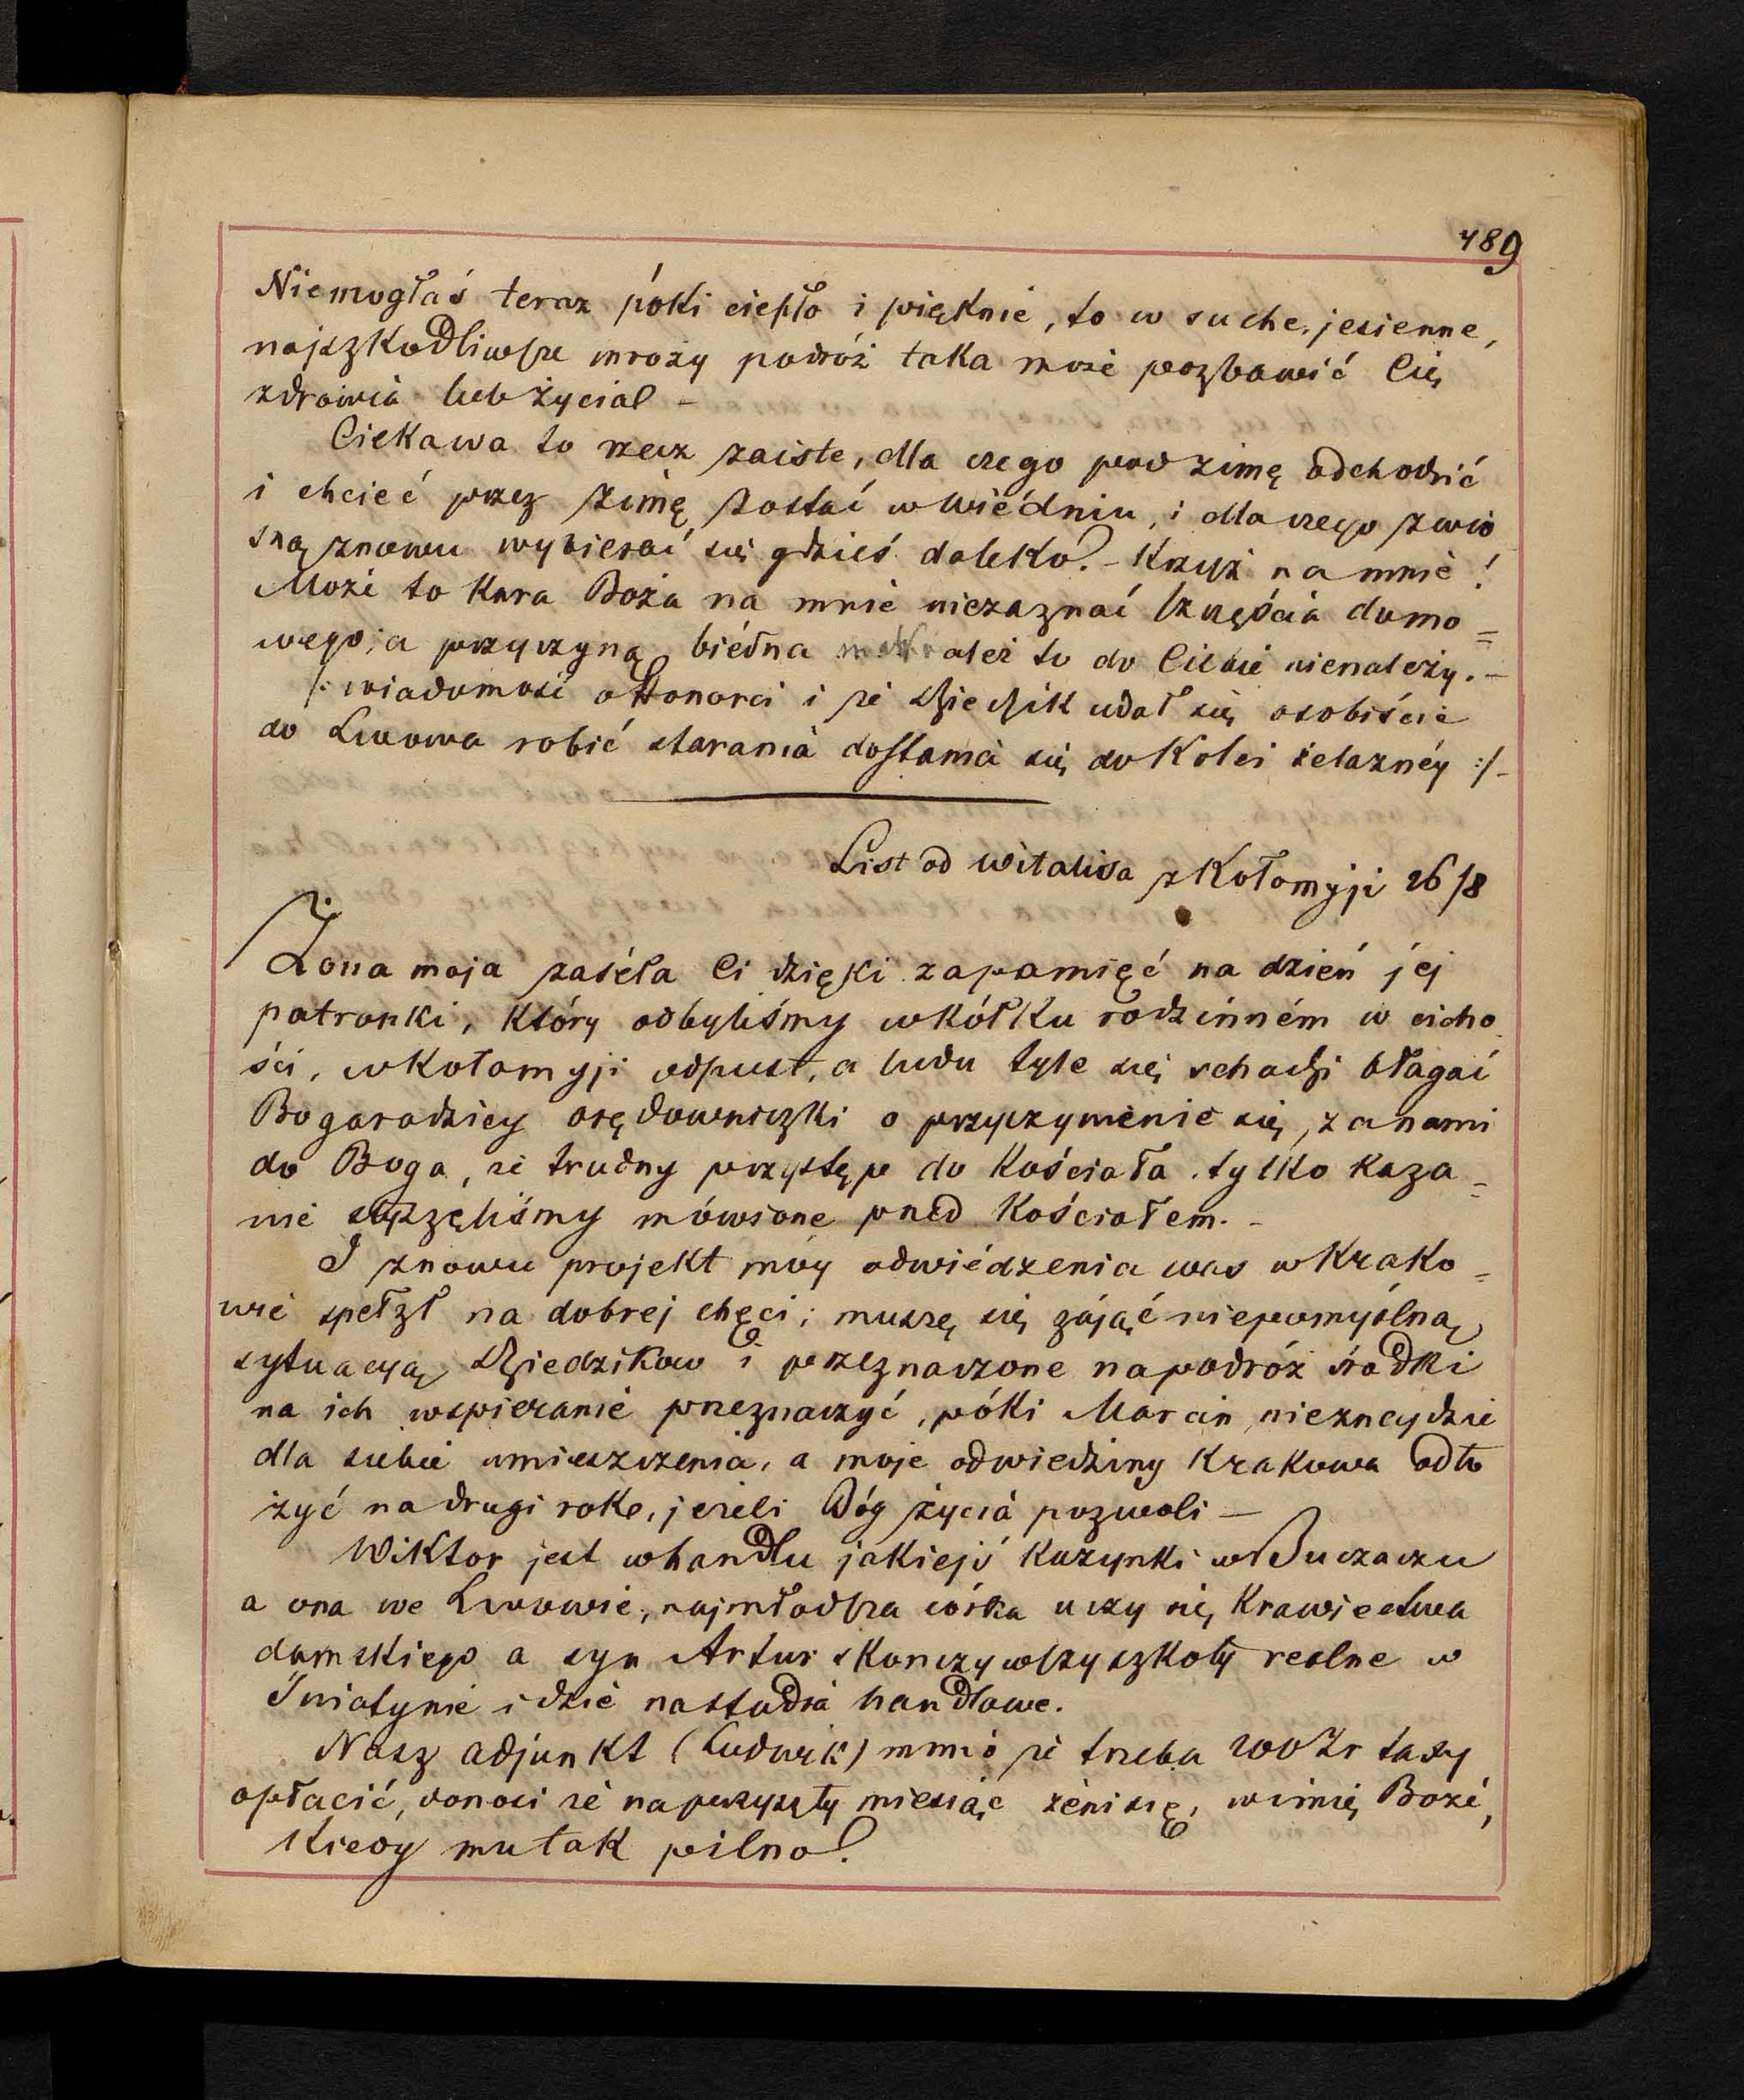 489
Niemogłaś teraz póki ciepło i pięknie, to w suche, jesienne,
najszkodliwsze mrozy podróż taka może pozbawić Cię
zdrowia lub życia! -
Ciekawa to rzecz zaiste, dla czego pod zimę odchodzić
i chcieć przez zimę zostać w Wiédniu, i dla czego z wio
sną znowu wybierać się gdzieś daleko? - Krzyż na mnie!
Może to kara Boża na mnie niezaznać szczęścia domo=
wego; a przyczyną biédna matka ależ to do Ciebie nienależy. -
/: wiadomość o Honorci i że Dziedzik udał się osobiście
do Lwowa robić starania dostania się do Kolei żelaznéy :/-
List od Witalisa z Kołomyji 26/8
Żona moja zaséła Ci dzięki zapamięć na dzień jéj
patronki, który odbyliśmy w kółku rodzinném w cicho
ści, w Kołomyji odpust, a ludu tyle się schodzi błagać
Bogarodzicy orędowniczki o przyczynienie się, za nami
do Boga, że trudny przystęp do Kościoła. tylko kaza=
nie słyszeliśmy mówione przed Kościołem. -
I znowu projekt móy odwiédzenia was w Krako=
wie spełzł na dobrej chęci; muszę się zająć niepomyślną
sytuacyą Dziedzików i przeznaczone napodróż środki
na ich wspieranie przeznaczyć, póki Marcin nieznajdzie
dla siebie umieszczenia, a moje odwiedziny Krakowa odło
żyć na drugi rok, jeżeli Bóg życia pozwoli —
Wiktor jest w handlu jakiejś kuzynki w Buczaczu
a ona we Lwowie, najmłodsza córka uczy się Krawiectwa
damskiego a syn Artur skończywszy szkoły realne w
Śniatynie idzie nastudia handlowe.
Nasz adjunkt (Ludwik) mimo że trzeba 200 Zr taxy
opłacić, donosi że naprzyszły miesiąc żenisię, wimię Boże,
Kiedy mu tak pilno!